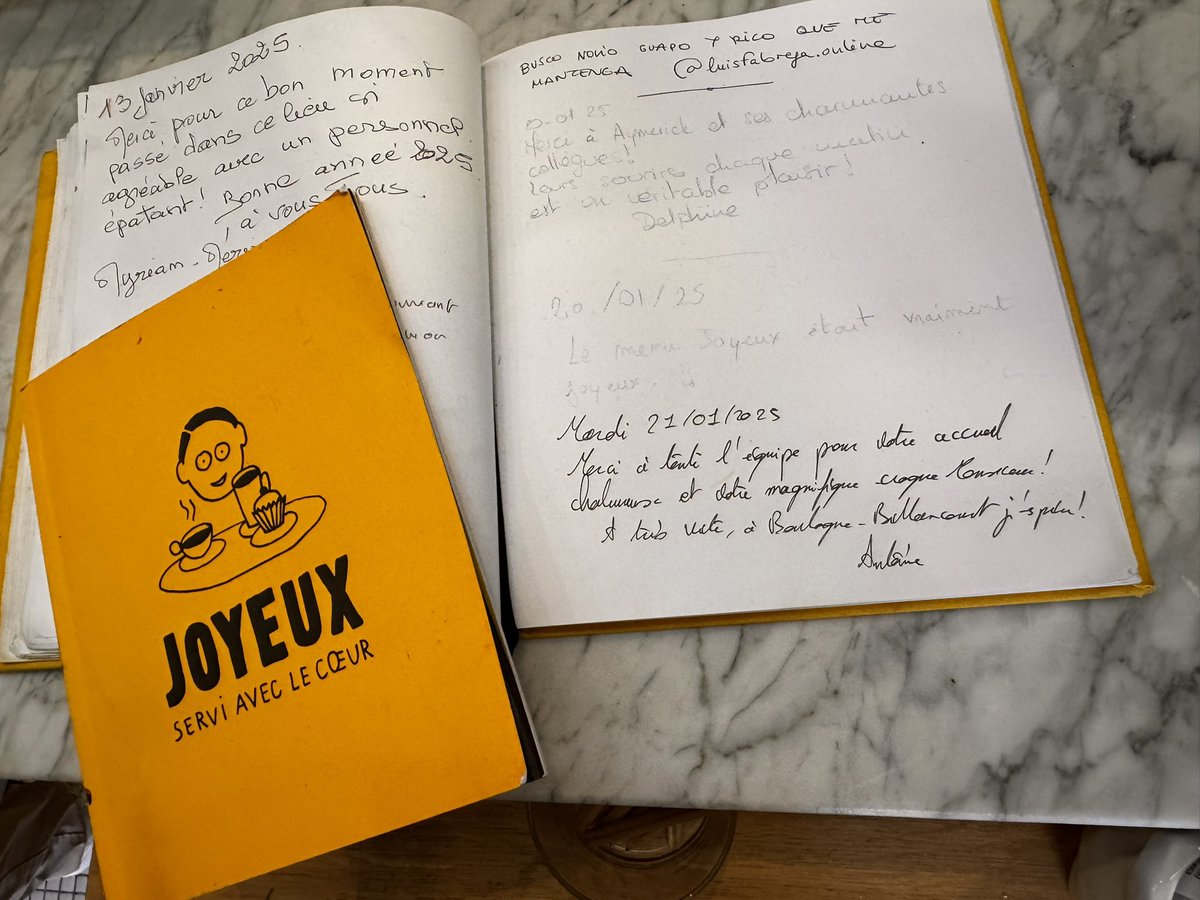 13 Janvier 2025.
Merci pour ce bon moment
passé dans ce lieu si
agréable avec un personnel
épatant! Bonne année 2025
à vous Tous.
Myriam -
BUSCO NOVIO GUAPO Y RICO QUE ME
MANTENGA @luisfabrega.online
01.25
Merci à Aymerick et ses charmantes
collogues!
Leurs sourires chaque matin
est un véritable plaisir!
Delphine
20/01/25
Le menu Joyeux était vraiment
joyeux.
Mardi 21/01/2025
Merci à toute l'équipe pour votre accueil
chaleureux et votre magnifique croque Monsieur!
A très vite, à Boulogne-Billancourt j'espère!
Antoine
JOYEUX
SERVI AVEC LE CŒUR